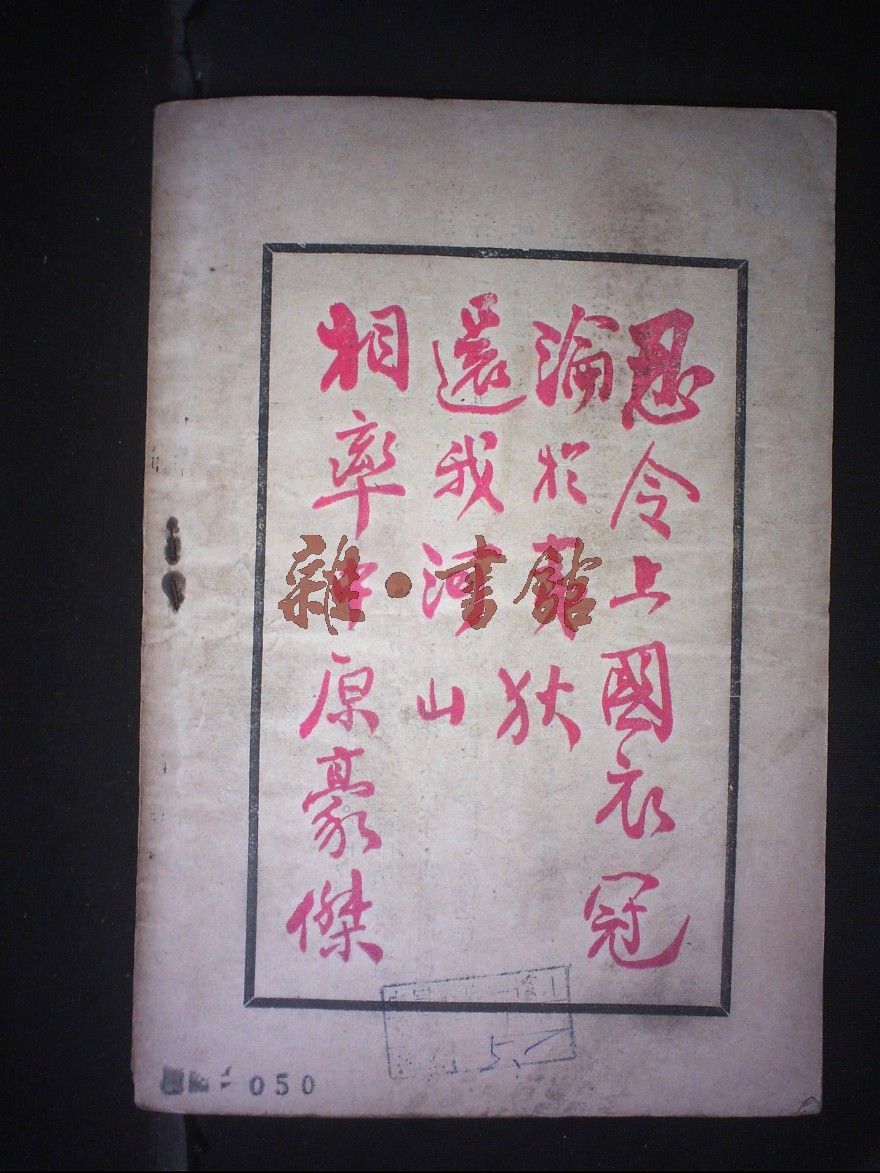 忍令上國衣冠
淪於夷狄
相率中原豪傑
還我河山
雜·書館
050